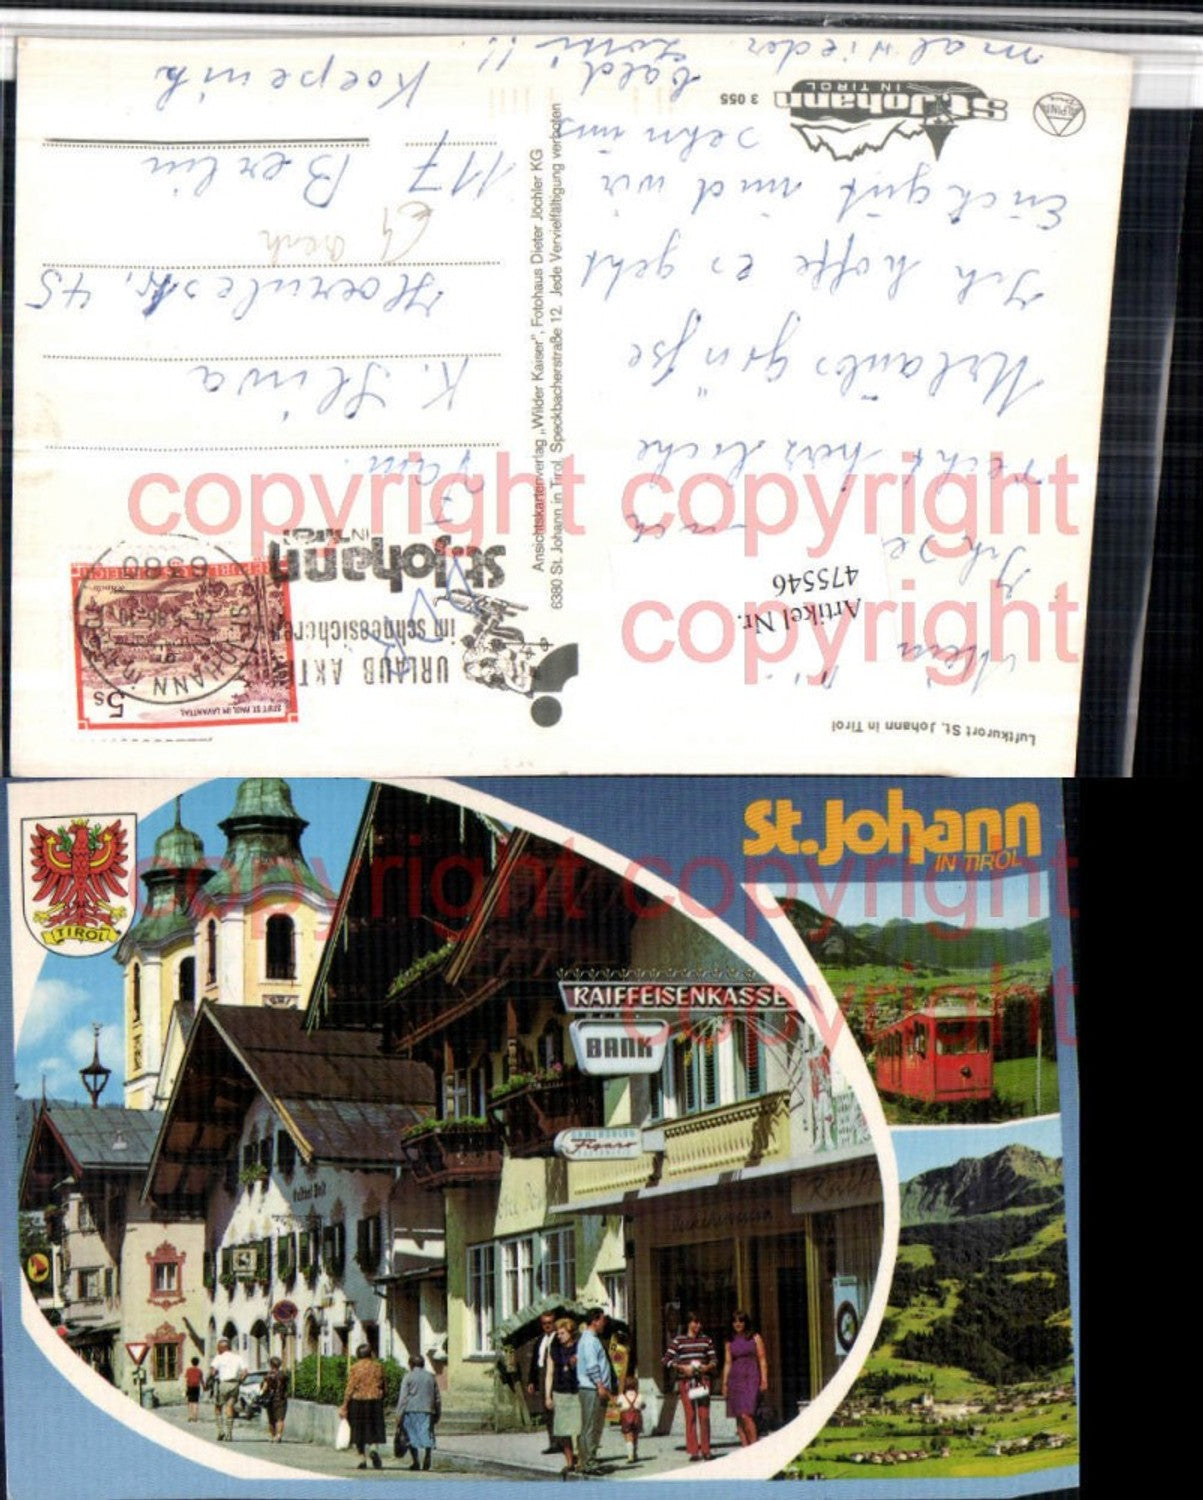 Luftkurort St. Johann in Tirol
Artikel Nr.
475546
recht herzliche
Urlaubsgrüße
Ich hoffe es geht
Euch gut und wir
sehn uns
bald
mal wieder.
ALPINA
St.Johann
IN TIROL
3 055
Ansichtskartenverlag „Wilder Kaiser", Fotohaus Dieter Jöchler KG
6380 St. Johann in Tirol, Speckbacherstraße 12. Jede Vervielfältigung verboten
URLAUB AKT
im schneesicheren
St.Johann
IN TIROL
5s
STIFT ST. PAUL IM LAVANTTAL
REPUBLIK ÖSTERREICH
ST. JOHANN in TIROL
6380
Fam.
K. Sliwa
45
117 Berlin
Koepenik
copyright copyright
copyright
TIROL
St.Johann
IN TIROL
RAIFFEISENKASSE
BANK
Figaro
copyright copyright
copyright